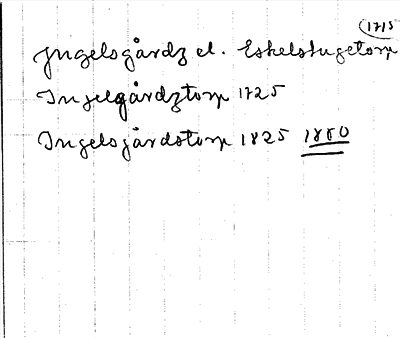 1715
Jngelsgårdz el. Eskelstugetorp
Ingelgårdztorp 1725
Ingelsgårdstorp 1825 1880